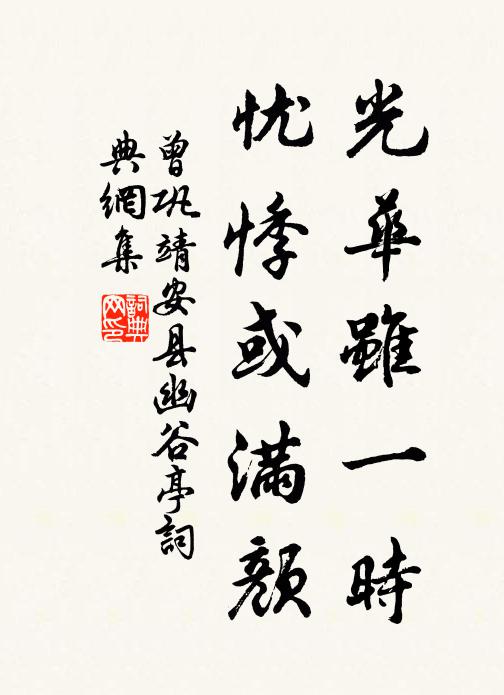 光華雖一時
忧悸或满顏
曾巩靖安县幽谷亭詞
典網集
詞典网印